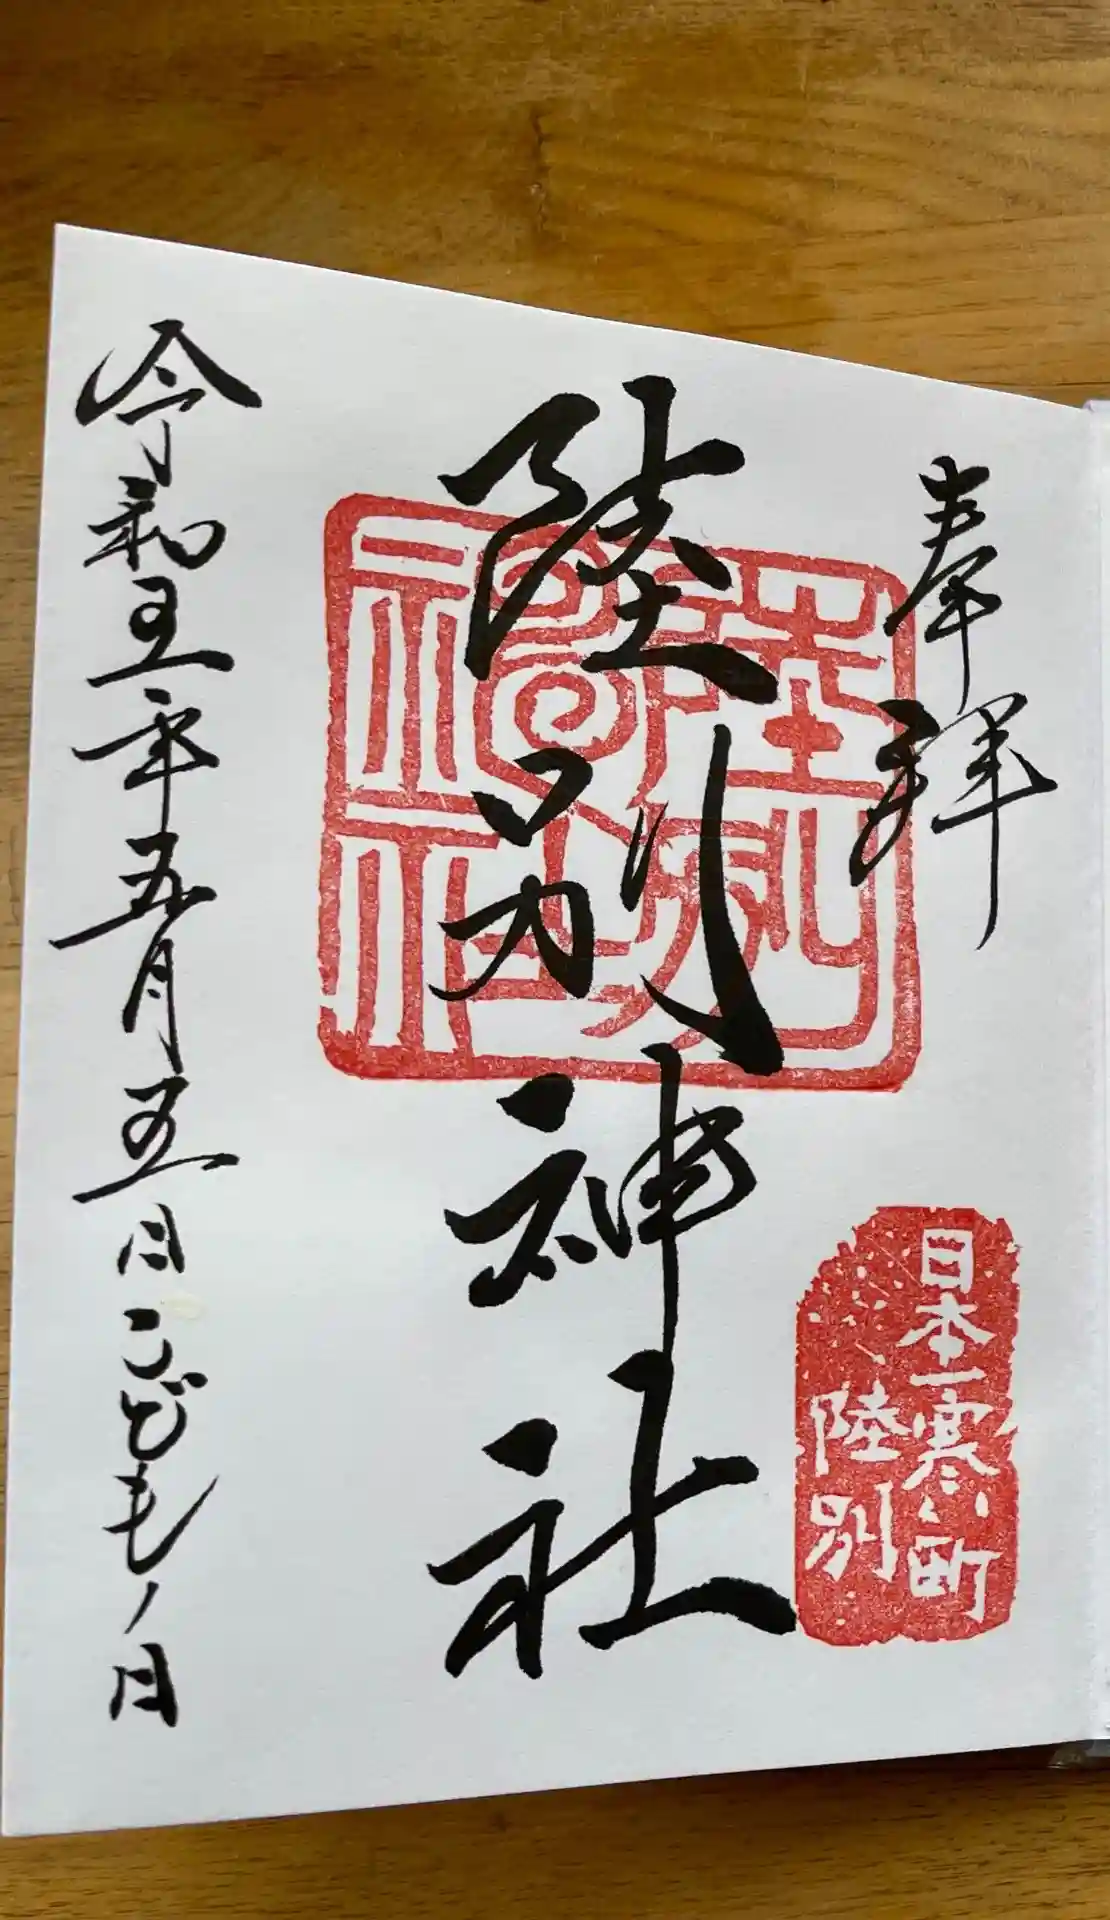 奉拝
日本一寒い町
陸別
陸別神社
陸別
神社
令和五年五月五日こどもノ日